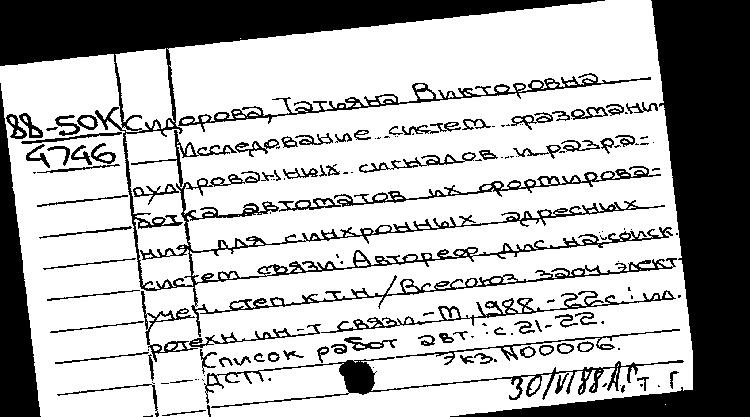 88-50К Сидорова, Татьяна Викторовна.
4746 Исследование систем фазомани-
пулированных сигналов и разра-
ботка автоматов их формирова-
ния для синхронных адресных
систем связи: Автореф. дис. на соиск.
учен. степ. к.т.н. / Всесоюз. заоч. элект-
ротехн. ин-т связи. - М., 1988. - 22с.: ил.
Список работ авт.: с. 21-22.
ДСП. Экз. N00006.
30/VI88
т. г.